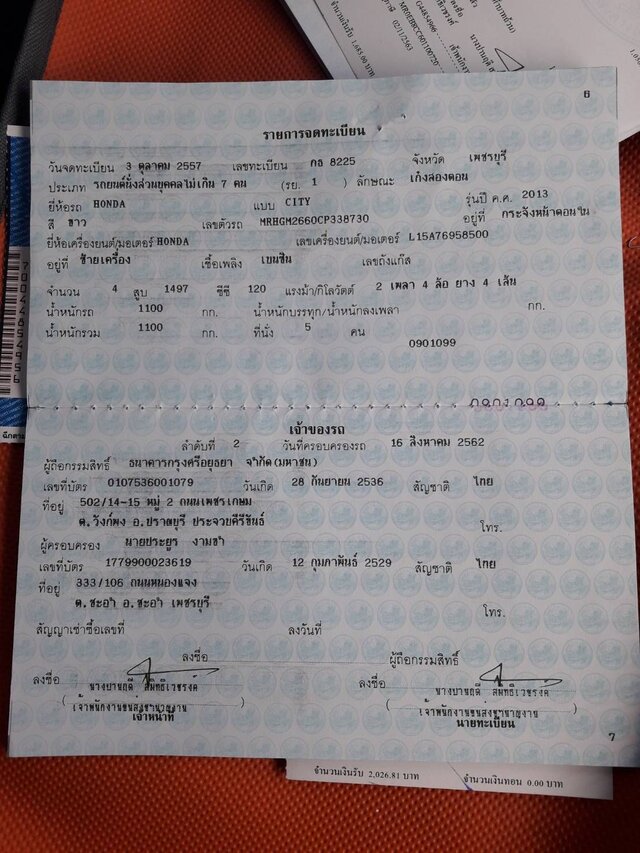 จำนวนเงินรับ 1,685.00 บาท
02/11/2563
6
รายการจดทะเบียน
วันจดทะเบียน 3 ตุลาคม 2557 เลขทะเบียน กธ 8225 จังหวัด เพชรบุรี
ประเภท รถยนต์นั่งส่วนบุคคลไม่เกิน 7 คน (รย. 1 ) ลักษณะ เก๋งสองตอน
ยี่ห้อรถ HONDA แบบ CITY รุ่นปี ค.ศ. 2013
สี ขาว เลขตัวรถ MRHGM2660CP338730 อยู่ที่ กระจังหน้าตอนใน
ยี่ห้อเครื่องยนต์/มอเตอร์ HONDA เลขเครื่องยนต์/มอเตอร์ L15A76958500
อยู่ที่ ซ้ายเครื่อง เชื้อเพลิง เบนซิน เลขถังแก๊ส
จำนวน 4 สูบ 1497 ซีซี 120 แรงม้า/กิโลวัตต์ 2 เพลา 4 ล้อ ยาง 4 เส้น
น้ำหนักรถ 1100 กก. น้ำหนักบรรทุก/น้ำหนักลงเพลา กก.
น้ำหนักรวม 1100 กก. ที่นั่ง 5 คน
0901099
เจ้าของรถ
ลำดับที่ 2 วันที่ครอบครองรถ 16 สิงหาคม 2562
ผู้ถือกรรมสิทธิ์ ธนาคารกรุงศรีอยุธยา จำกัด(มหาชน)
เลขที่บัตร 0107536001079 วันเกิด 28 กันยายน 2536 สัญชาติ ไทย
ที่อยู่ 502/14-15 หมู่ 2 ถนนเพชรเกษม
ต.วังก์พง อ.ปราณบุรี ประจวบคีรีขันธ์ โทร.
ผู้ครอบครอง นายประยูร งามขำ
เลขที่บัตร 1779900023619 วันเกิด 12 กุมภาพันธ์ 2529 สัญชาติ ไทย
ที่อยู่ 333/106 ถนนหนองแจง
ต.ชะอำ อ.ชะอำ เพชรบุรี โทร.
สัญญาเช่าซื้อเลขที่ ลงวันที่
ลงชื่อ ผู้ถือกรรมสิทธิ์
ลงชื่อ ลงชื่อ
เจ้าหน้าที่ นายทะเบียน
7
จำนวนเงินรับ 2,026.81 บาท จำนวนเงินทอน 0.00 บาท